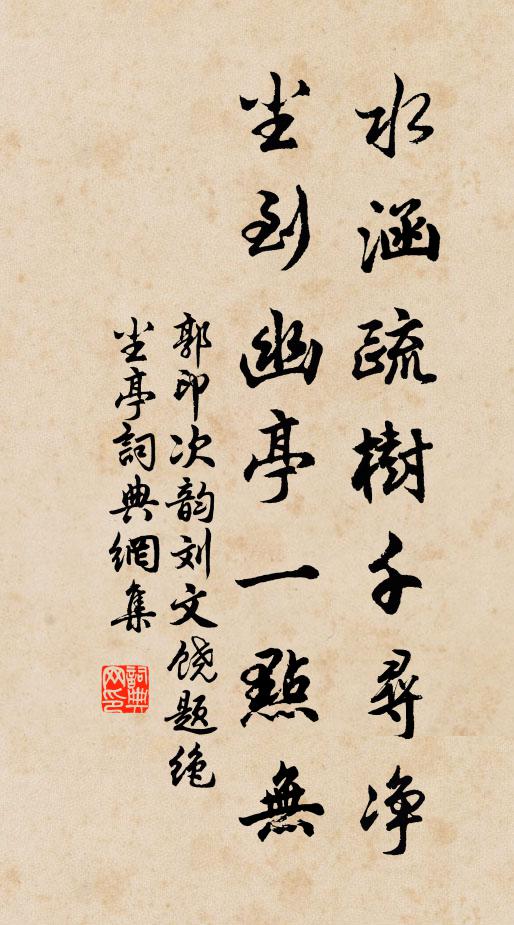 水涵疏樹千尋净
坐到幽亭一點無
郭印次韵刘文饶题绝
尘亭詞典網集
詞典網印